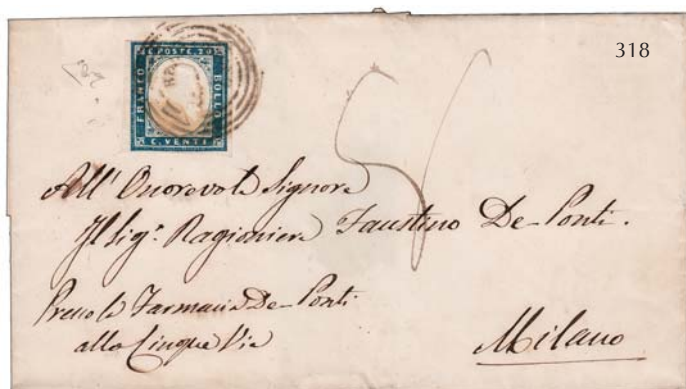 318
C. POSTE. 20
FRANCO
BOLLO
C. VENTI
All' Onorevole Signore
Il Sigr. Ragioniere Faustino De-Ponti.
Presso la Farmacia De-Ponti
alle Cinque Vie
Milano